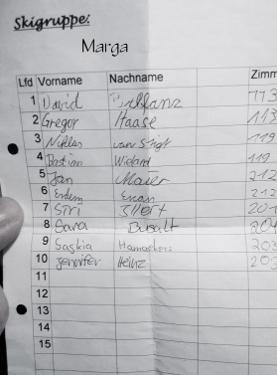 Skigruppe:
Marga
Lfd Vorname Nachname Zimm
1 David 113
2 Gregor Haase 113
3 Niklas van Stigt 119
4 Bastian Widard 119
5 Jan Maier 212
6 Erdem Ercan 212
7 Siri 201
8 Sara Busalt 204
9 Saskia Hamachers 203
10 Jennifer Heinz 202
11
12
13
14
15